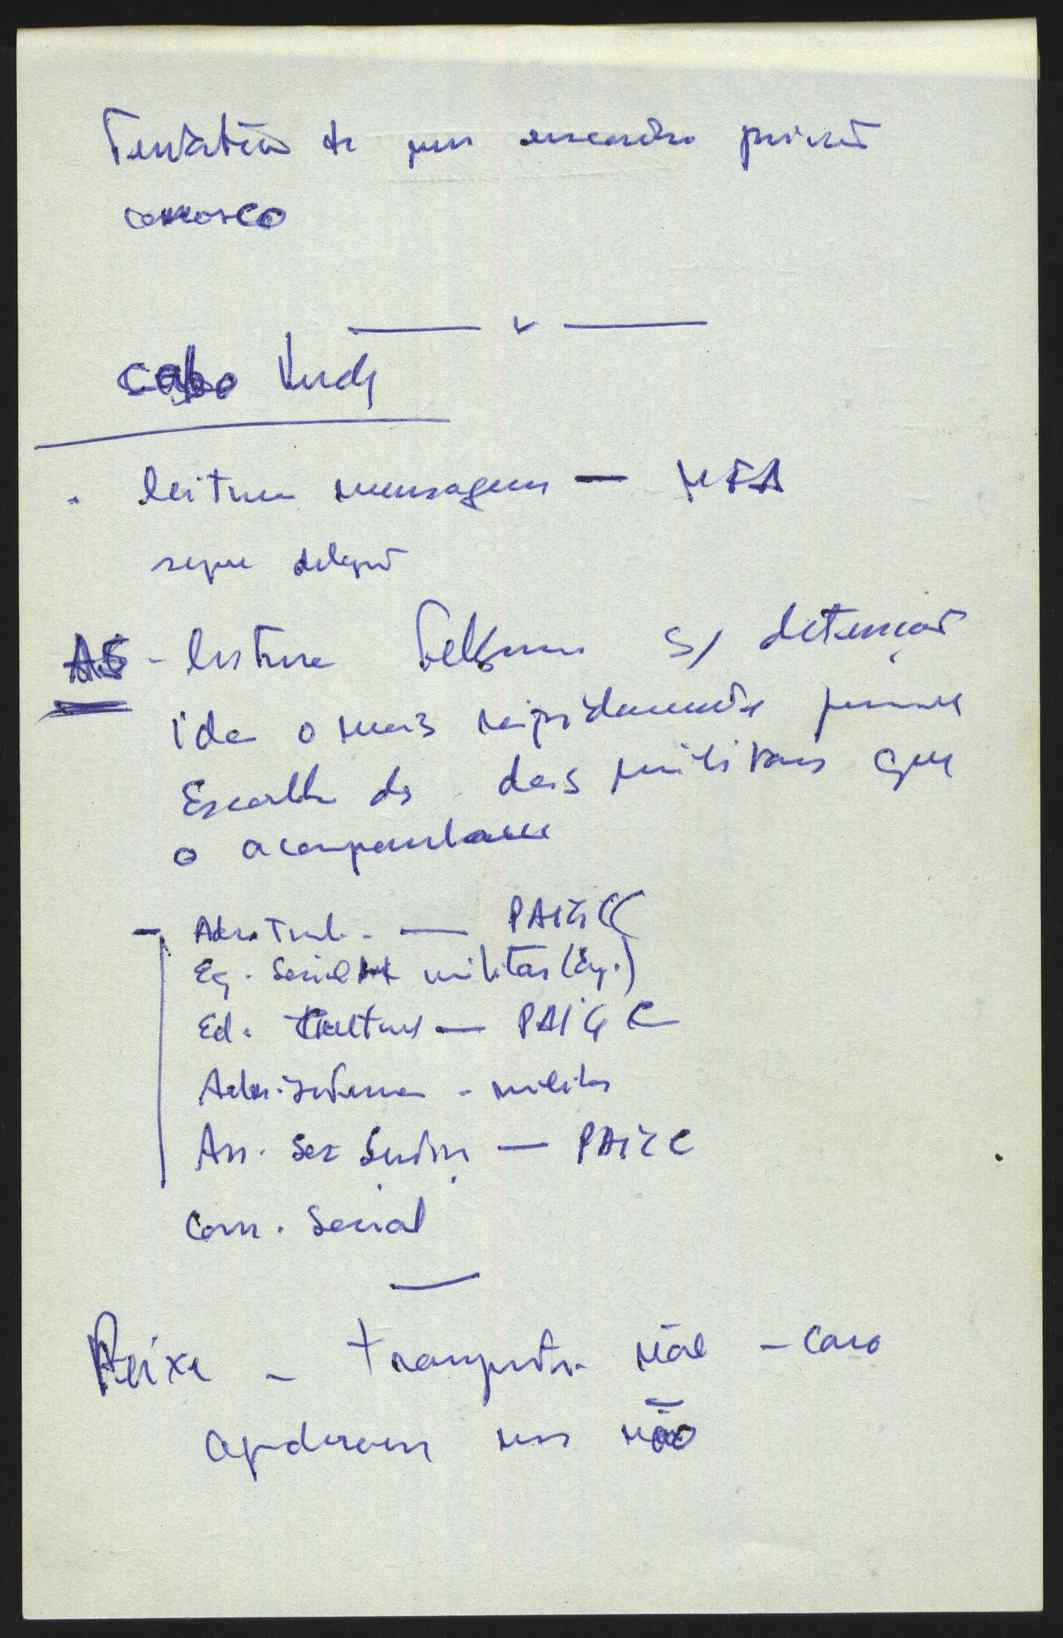 Tentativa de um encontro privado
connosco
Cabo Verde
. leitura mensagem — MFA
segue delegad
AS - leitura Telegrama s/ detenção
ida o mais rapidamente
Escolha de dois militares que
o acompanham
- Adm. Trab. — PAIGC
Eq. Social militar (Eng.)
Ed. Cultura — PAIGC
Adm. Interna - militar
Ass. — PAIGC
Com. Social
Peixe - transporte não - caro
apodrecem nas mão